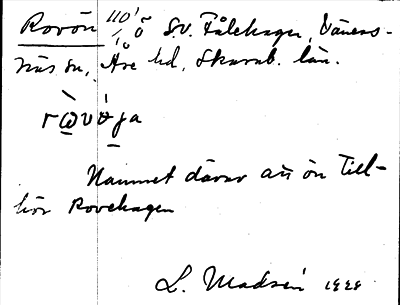 Rovön 110' ö S.V. Fålehagen, Väners-
näs sn, Åse hd, Skarab. län.
Namnet därav att ön till-
hör Rovehagen
L. Madsén 1928